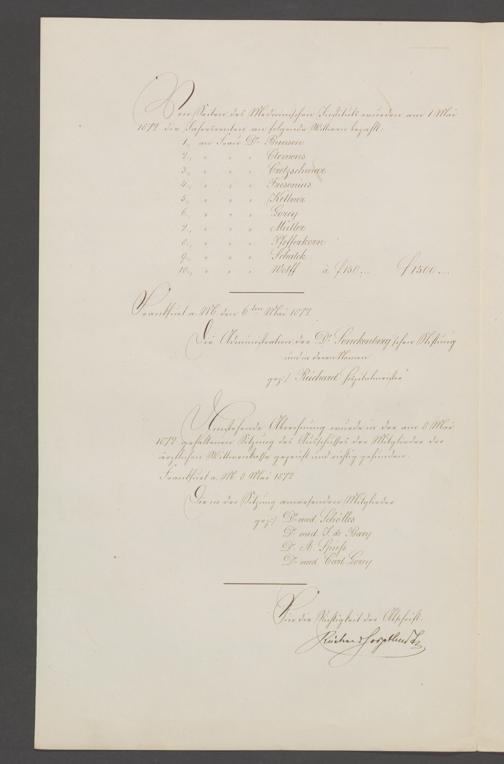 Von Seiten des Medicinischen Instituts wurden am 1 Mai
1872 die Jahresrenten an folgende Wittwen bezahlt.
1., an Frau Dr Bunsen
2., " " " Clemens
3., " " " Cretzschmar
4., " " " Fresenius
5., " " " Kellner
6., " " " Lorey
7., " " " Müller
8., " " " Pfefferkorn
9., " " " Schalck
10., " " " Wolff à f 150 ... f 1500 ...
Frankfurt a. M. den 6ten Mai 1872
Die Administration der Dr Senckenberg'schen Stiftung
und in deren Namen
gez/ Reichard Hospitalmeister
Umstehende Abrechnung wurde in der am 8 Mai
1872 gehaltenen Sitzung des Ausschusses der Mitglieder der
ärztlichen Wittwenkasse geprüft und richtig gefunden.
Frankfurt a. M. 8 Mai 1872
Die in der Sitzung anwesenden Mitglieder
gez/ Dr med Schölles
Dr med J. de Bary
Dr A. Spiess
Dr med Carl Lorey
Für die Richtigkeit der Abschrift.